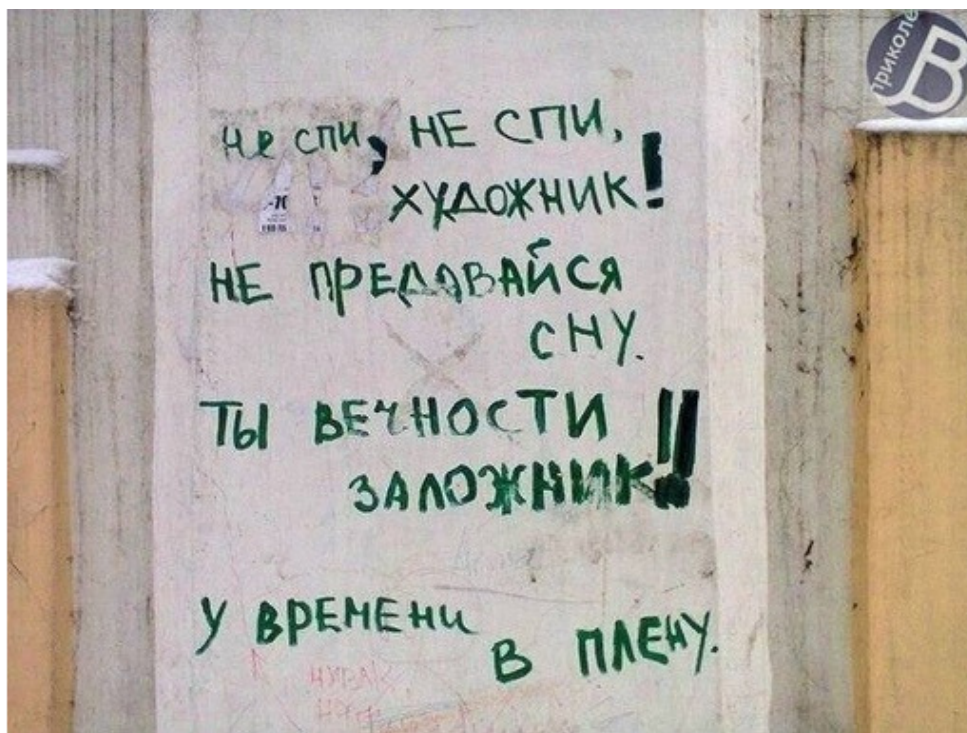 не спи, НЕ СПИ,
ХУДОЖНИК!
НЕ ПРЕДАВАЙСЯ
СНУ.
ТЫ ВЕЧНОСТИ
ЗАЛОЖНИК!!
У ВРЕМЕНИ
В ПЛЕНУ.